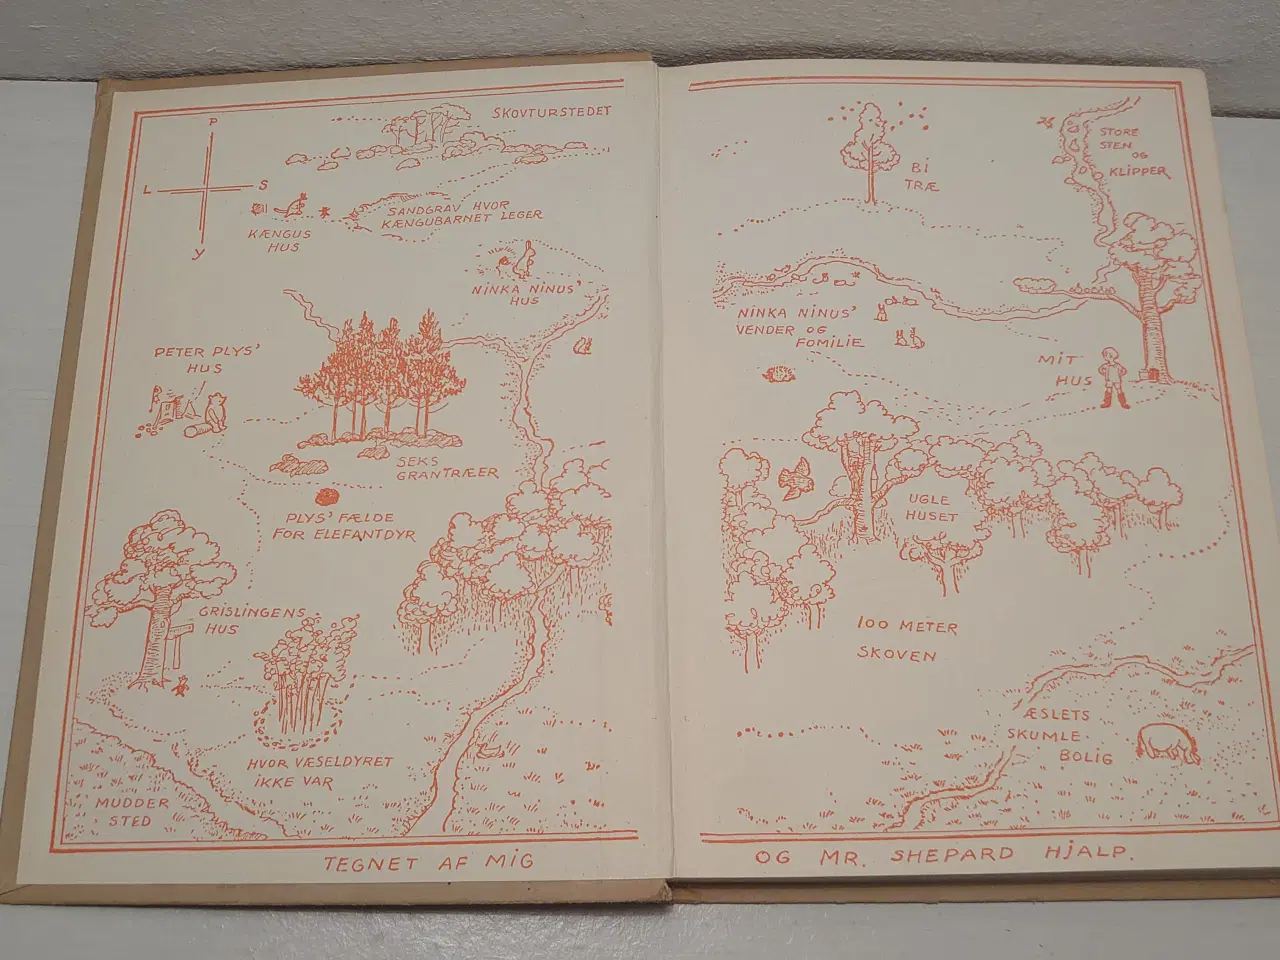 SKOVTURSTEDET
P
L
S
Y
KÆNGUS
HUS
SANDGRAV HVOR
KÆNGUBARNET LEGER
NINKA NINUS'
HUS
PETER PLYS'
HUS
SEKS
GRANTRÆER
PLYS' FÆLDE
FOR ELEFANTDYR
GRISLINGENS
HUS
HVOR VÆSELDYRET
IKKE VAR
MUDDER
STED
TEGNET AF MIG
BI
TRÆ
STORE
STEN
OG
KLIPPER
NINKA NINUS'
VENDER OG
FOMILIE
MIT
HUS
UGLE
HUSET
100 METER
SKOVEN
ÆSLETS
SKUMLE
BOLIG
OG MR. SHEPARD HJALP.